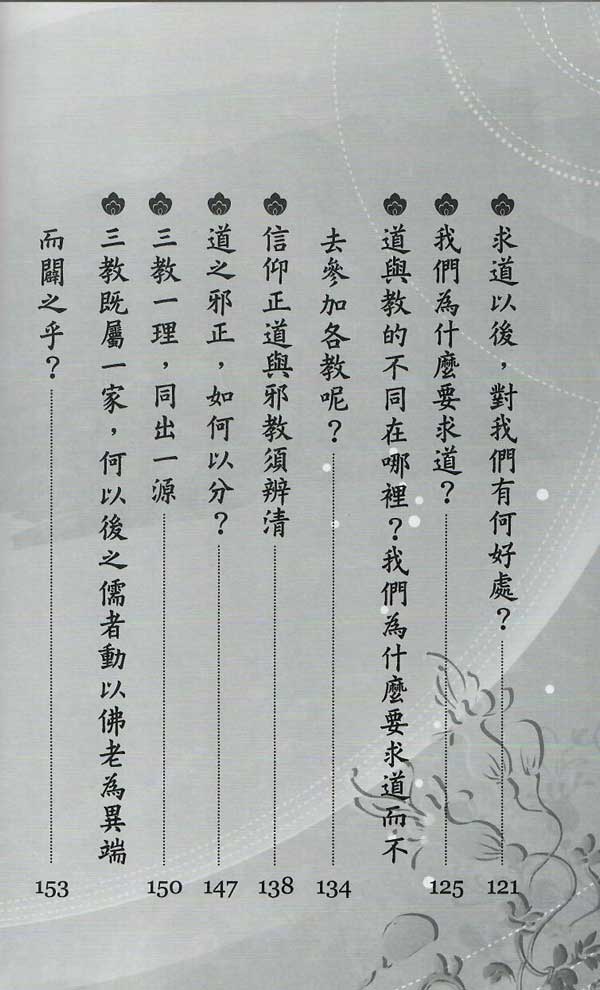 求道以後，對我們有何好處？ 121
我們為什麼要求道？ 125
道與教的不同在哪裡？我們為什麼要求道而不
去參加各教呢？ 134
信仰正道與邪教須辨清 138
道之邪正，如何以分？ 147
三教一理，同出一源 150
三教既屬一家，何以後之儒者動以佛老為異端
而闢之乎？ 153